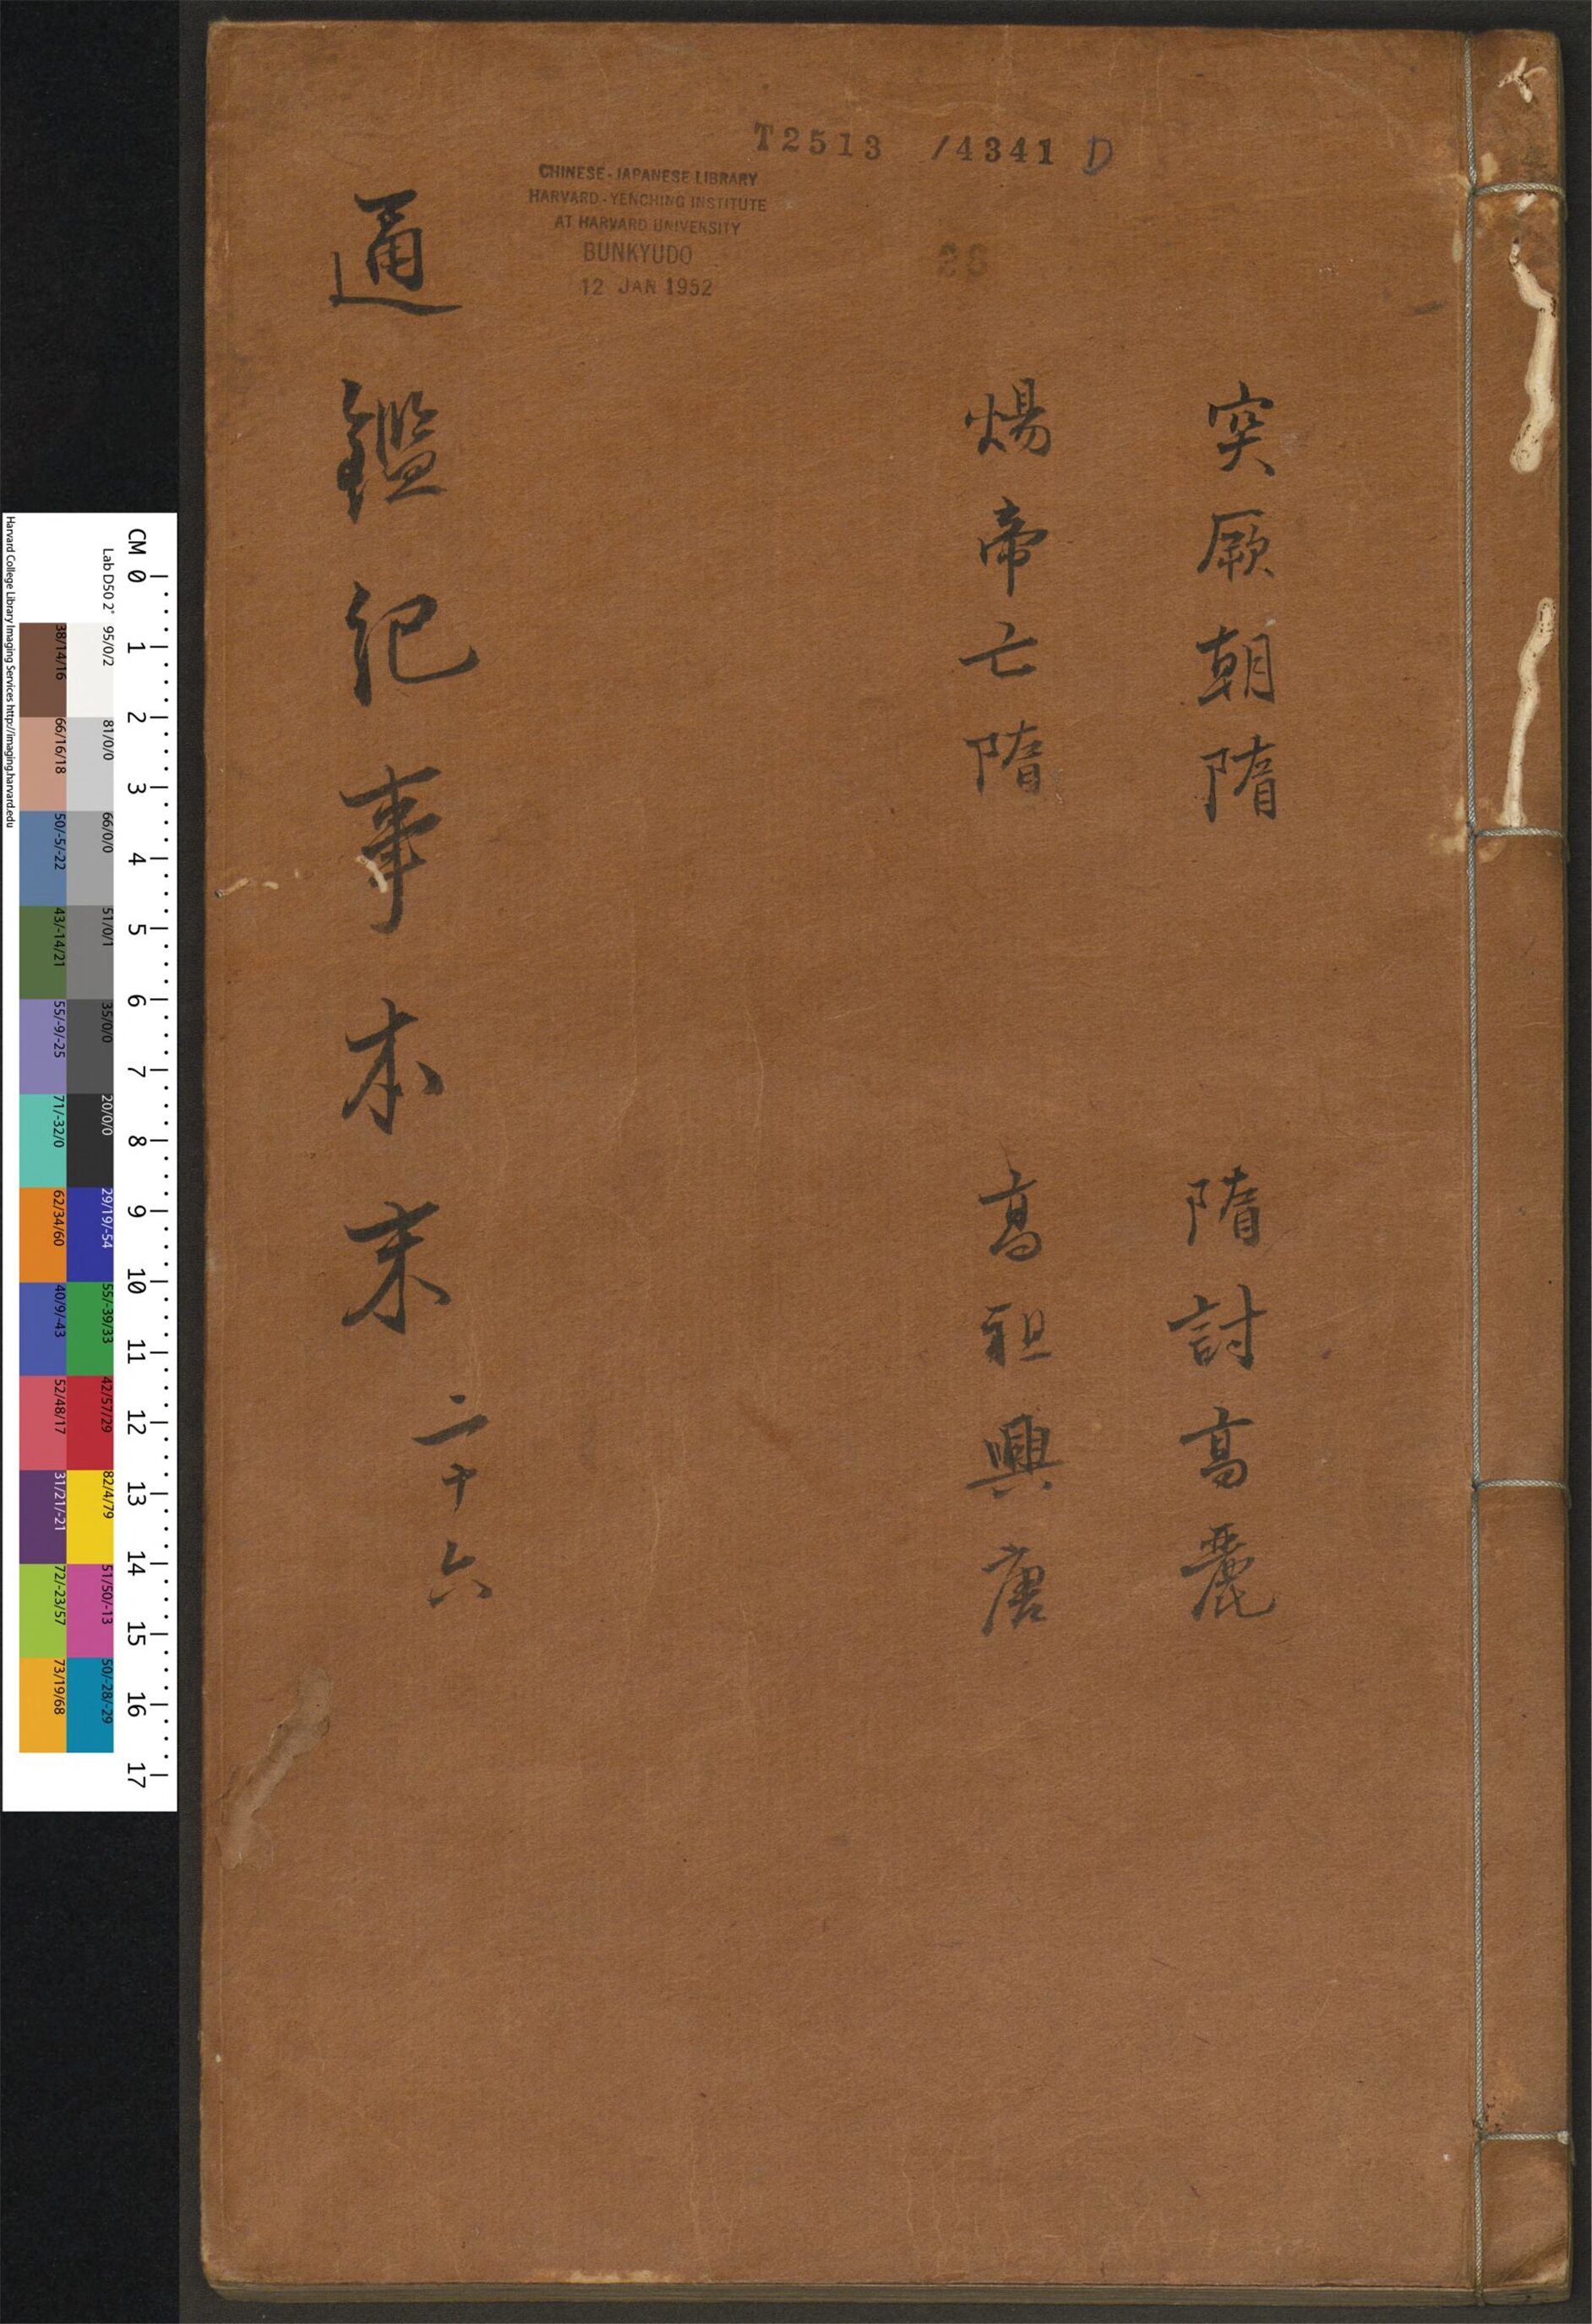 T2513 /4341 D
CHINESE-JAPANESE LIBRARY
HARVARD-YENCHING INSTITUTE
AT HARVARD UNIVERSITY
BUNKYUDO
12 JAN 1952
26
突厥朝隋
隋討高麗
煬帝亡隋
高祖興唐
通鑑紀事本末
二十六
CM 0 1 2 3 4 5 6 7 8 9 10 11 12 13 14 15 16 17
Lab D50 2° 95/0/2 81/0/0 66/0/0 51/0/1 35/0/0 20/0/0 29/19/-54 55/-39/33 42/57/29 82/4/79 51/50/-13 50/-28/-29
38/14/16 66/16/18 50/-5/-22 43/-14/21 55/-9/-25 71/-32/0 62/34/60 40/9/-43 52/48/17 31/21/-21 72/-23/57 73/19/68
Harvard College Library Imaging Services http://imaging.harvard.edu